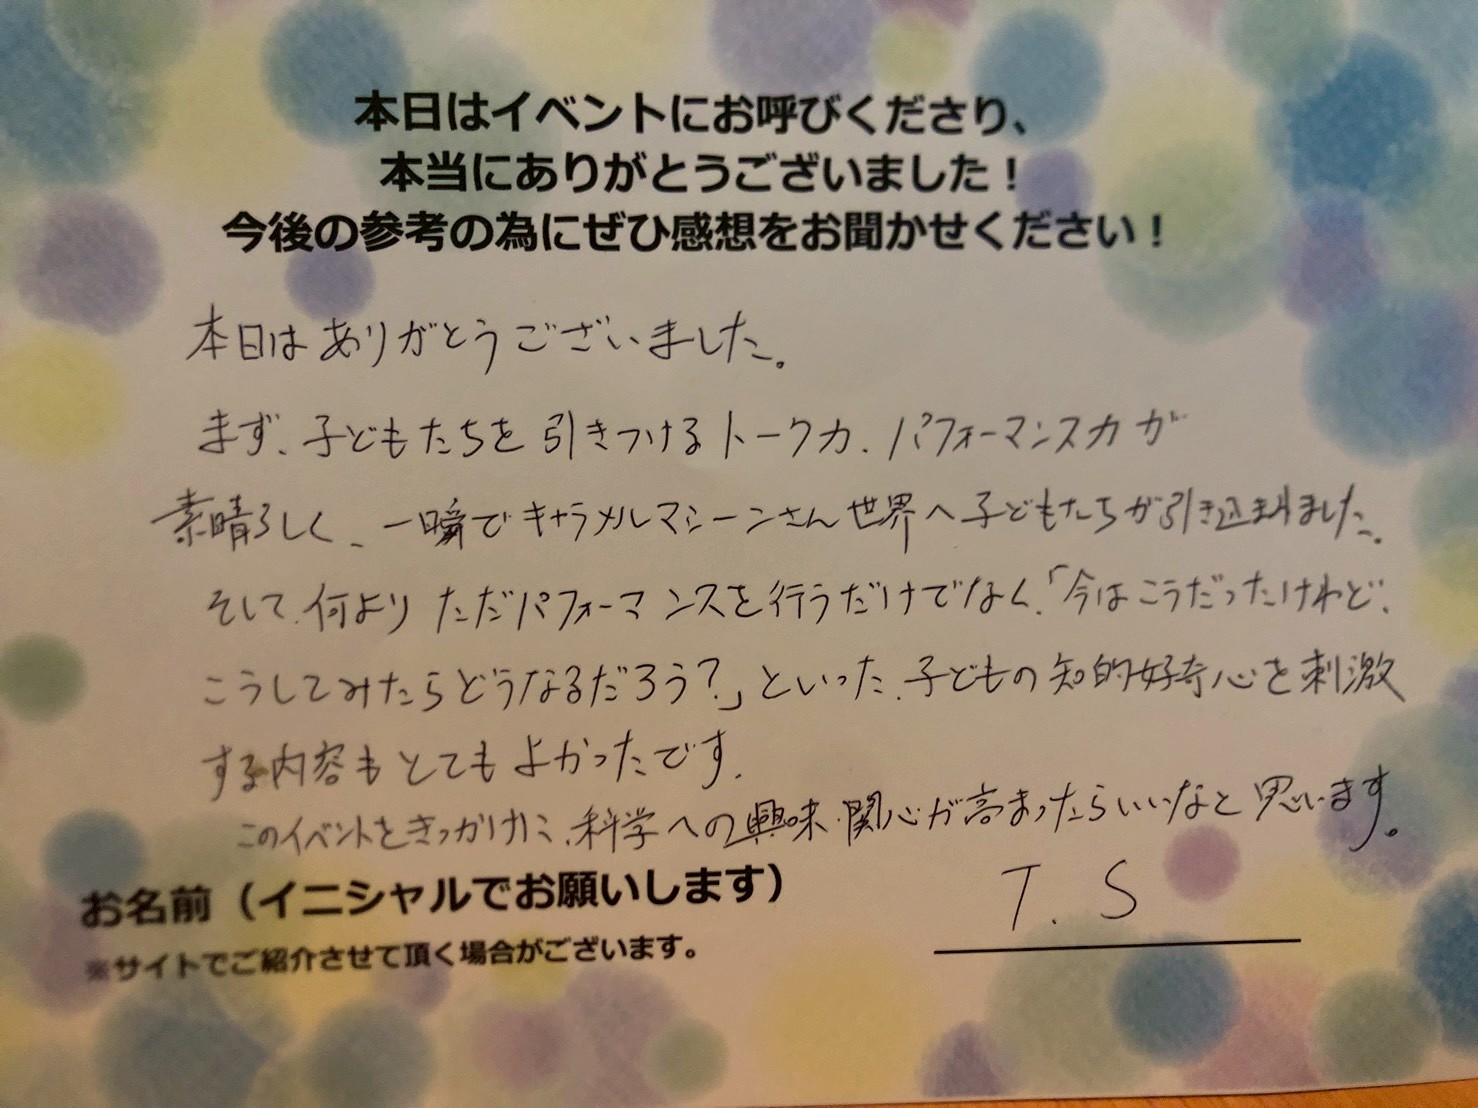 本日はイベントにお呼びくださり、
本当にありがとうございました！
今後の参考の為にぜひ感想をお聞かせください！
本日はありがとうございました。
まず、子どもたちを引きつけるトーク力、パフォーマンス力が
素晴らしく、一瞬でキャラメルマシーンさん世界へ子どもたちが引き込まれました。
そして、何よりただパフォーマンスを行うだけでなく、「今はこうだったけれど、
こうしてみたらどうなるだろう?」といった、子どもの知的好奇心を刺激
する内容もとてもよかったです。
このイベントをきっかけに、科学への興味・関心が高まったらいいなと思います。
お名前（イニシャルでお願いします）
T. S
※サイトでご紹介させて頂く場合がございます。